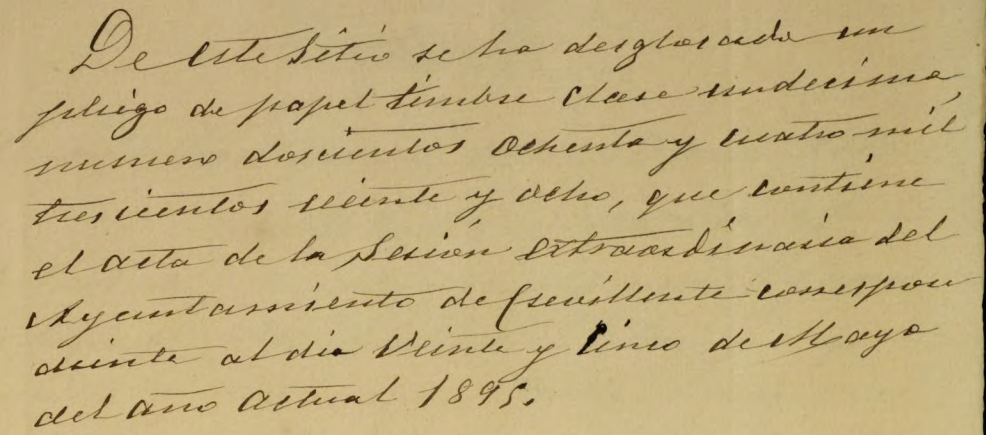 De este Sitio se ha desglosado un
pliego de papel timbre clase undecima,
numero doscientos ochenta y cuatro mil
trescientos veinte y ocho, que contiene
el acta de la Sesión extraordinaria del
Ayuntamiento de Crevillente correspon
diente al dia Veinte y cinco de Mayo
del año actual 1895.